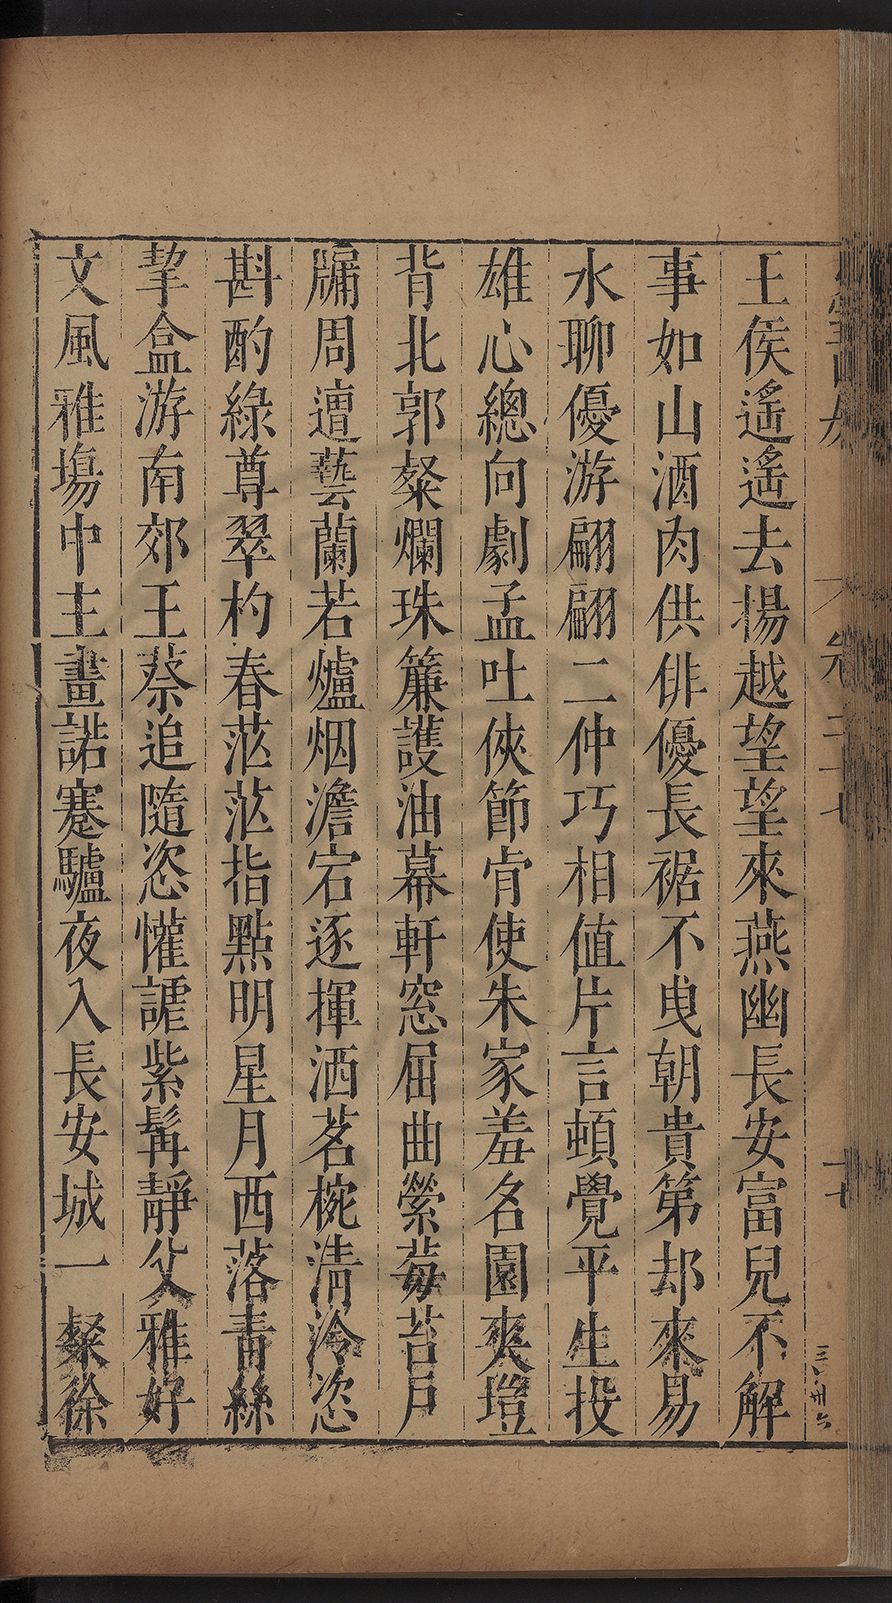 王侯遙遙去揚越望望來燕幽長安富兒不解
事如山酒肉供俳優長裾不曳朝貴第却來易
水聊優游翩翩二仲巧相值片言頓覺平生投
雄心總向劇孟吐俠節肯使朱家羞名園爽塏
背北郭粲爛珠簾護油幕軒窓屈曲縈莓苔戶
牖周遭藝蘭若爐烟澹宕逐揮洒茗椀清泠恣
斟酌綠尊翠杓春茫茫指點明星月西落青絲
挈盒游南郊王蔡追隨恣懽謔紫髯靜父雅好
文風雅塲中主畫諾蹇驢夜入長安城一粲徐